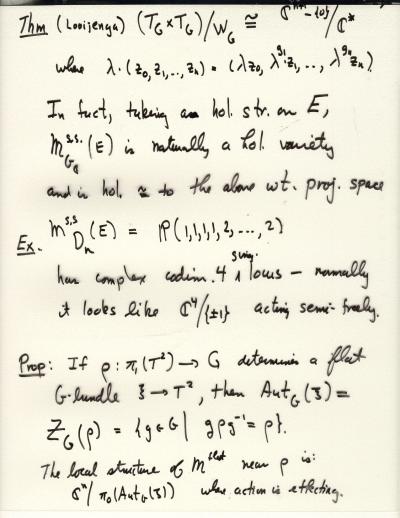 Thm (Looijenga) (T_G × T_G)/W_G ≅ ℂⁿ⁺¹-{0}/ℂ*
where λ·(z₀, z₁, .., zₙ) = (λz₀, λ^{g₁}z₁, .., λ^{gₙ}zₙ)
In fact, taking a hol. str. on E,
M^{s.s.}_{G_ℂ}(E) is naturally a hol. variety
and is hol. ≅ to the above wt. proj. space
Ex. M^{s.s}_{Dₙ}(E) = ℙ(1,1,1,1,2,...,2)
has complex codim. 4 sing. locus – normally
it looks like ℂ⁴/{±1} acting semi-freely.
Prop: If ρ: π₁(T²) → G determines a flat
G-bundle ξ → T², then Aut_G(ξ) =
Z_G(ρ) = {g ∈ G | gρg⁻¹ = ρ}.
The local structure of M^{flat} near ρ is:
ℂⁿ/π₀(Aut_G(ξ)) where action is effecting.